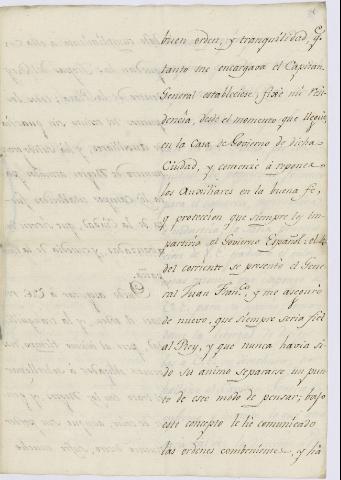 buen orden, y tranquilidad, q.
tanto me encargava el Capitan
General estableciese, fixé mi Resi-
dencia, desde el momento que llegué,
en la Casa de Govierno de dicha
Ciudad, y comencé á reponer
los Auxiliares en la buena fe,
y proteccion que siempre les im-
partiria el Govierno Español: el
del corriente se presentó el Gene-
ral Juan Fran.co, y me aseguró
de nuevo, que siempre seria fiel
al Rey, y que nunca havia si-
do su animo separarse un pun-
to de este modo de pensar; bajo
este concepto le he comunicado
las ordenes combenientes, y há